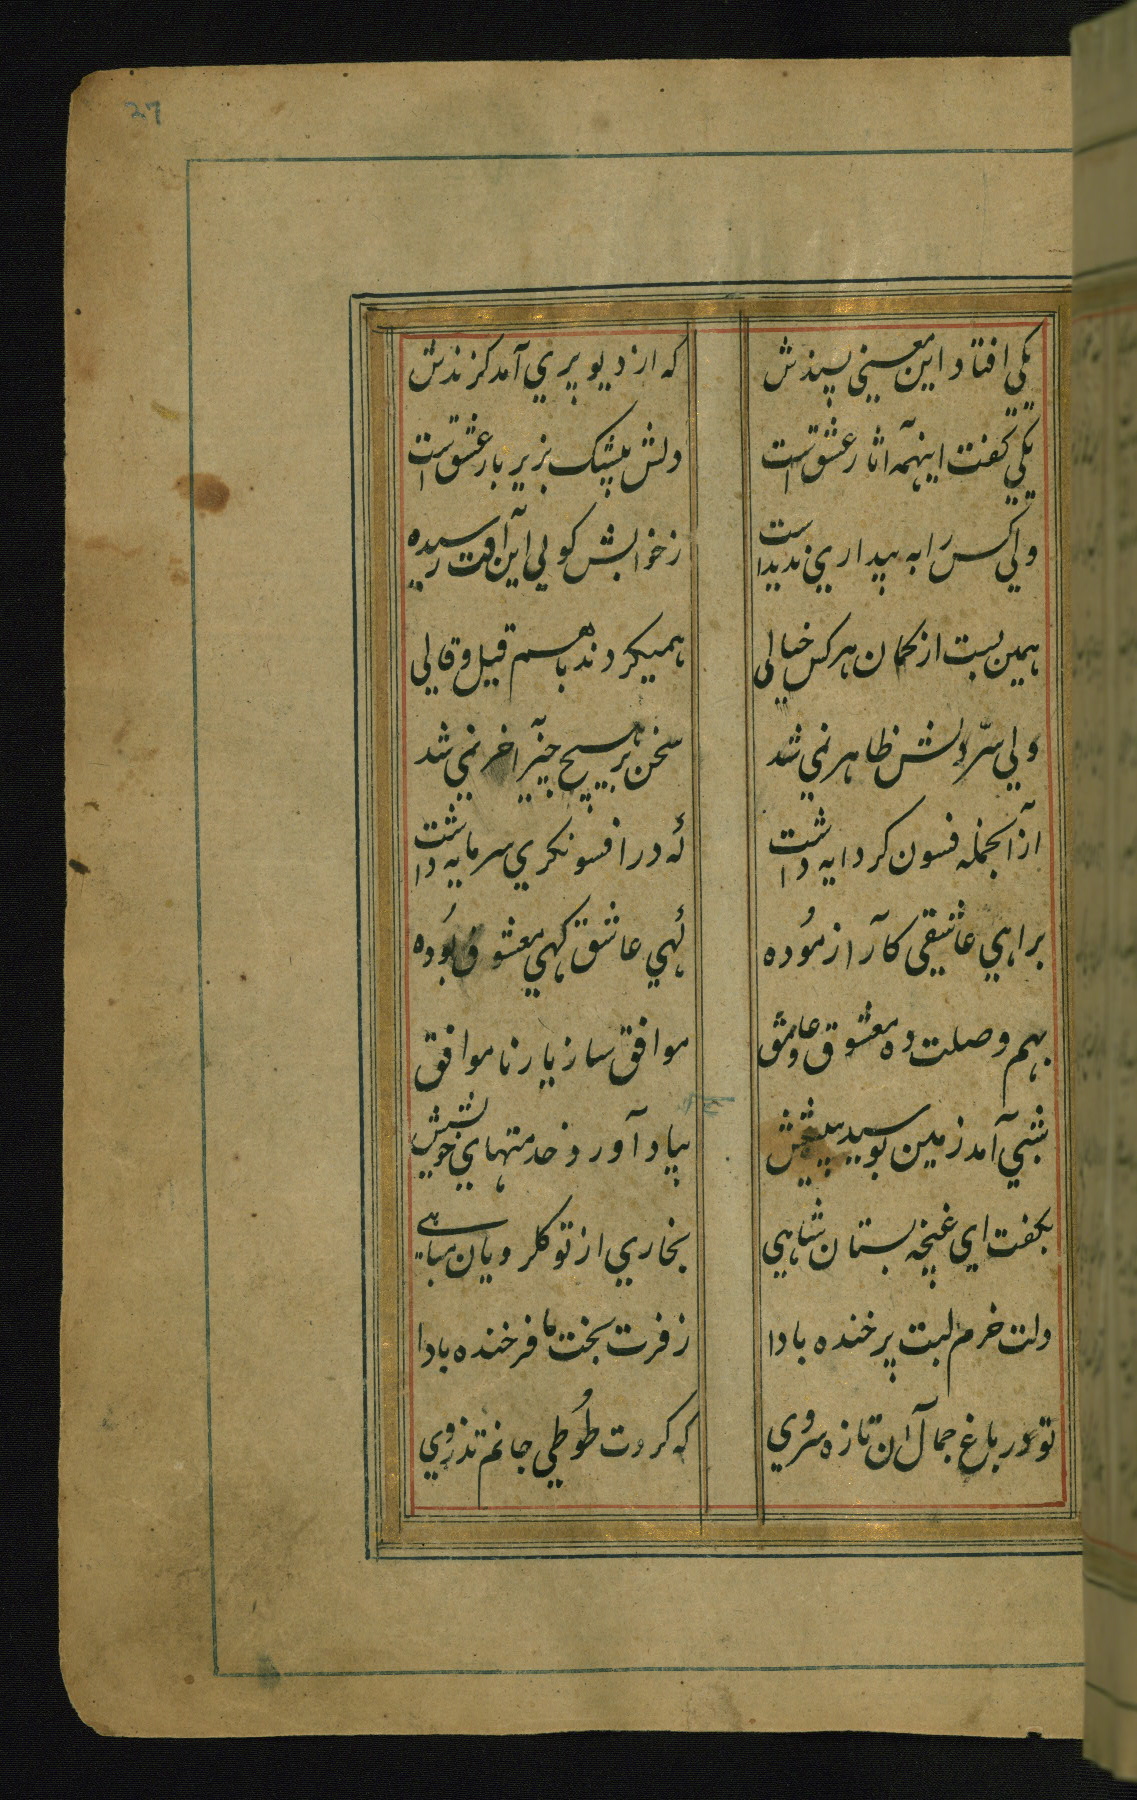 27
یکی افتاد این معنی پسندش که از دیو پری آمد کزندش
یکی کفت اینهمه آثار عشق است دلش بیشک بزیر بار عشق است
ولی کس را به بیداری ندیدست ز خوابش کولی این آفت رسیده
همین بست از کمان هر کس خیالی همیکردند با هم قیل و قالی
ولی سرّ دلش ظاهر نمی شد سخن بر هیچ چیز آخر نمی شد
از آنجمله فسون کر دایه داشت که در افسونکری سرمایه داشت
براهی عاشقی کار آزموده کهی عاشق کهی معشوق بوده
بهم وصلت ده معشوق و عاشق موافق ساز یار ناموافق
شبی آمد زمین بوسید پیشش بیاد آورد خدمتهای خویشش
بکفت ای غنچه بستان شاهی بخاری از تو کلرویان مباهی
دلت خرم لبت پر خنده بادا ز فرت بخت ما فرخنده بادا
تو در باغ جمال آن تازه سروی که کردت طوطی جانم تذروی